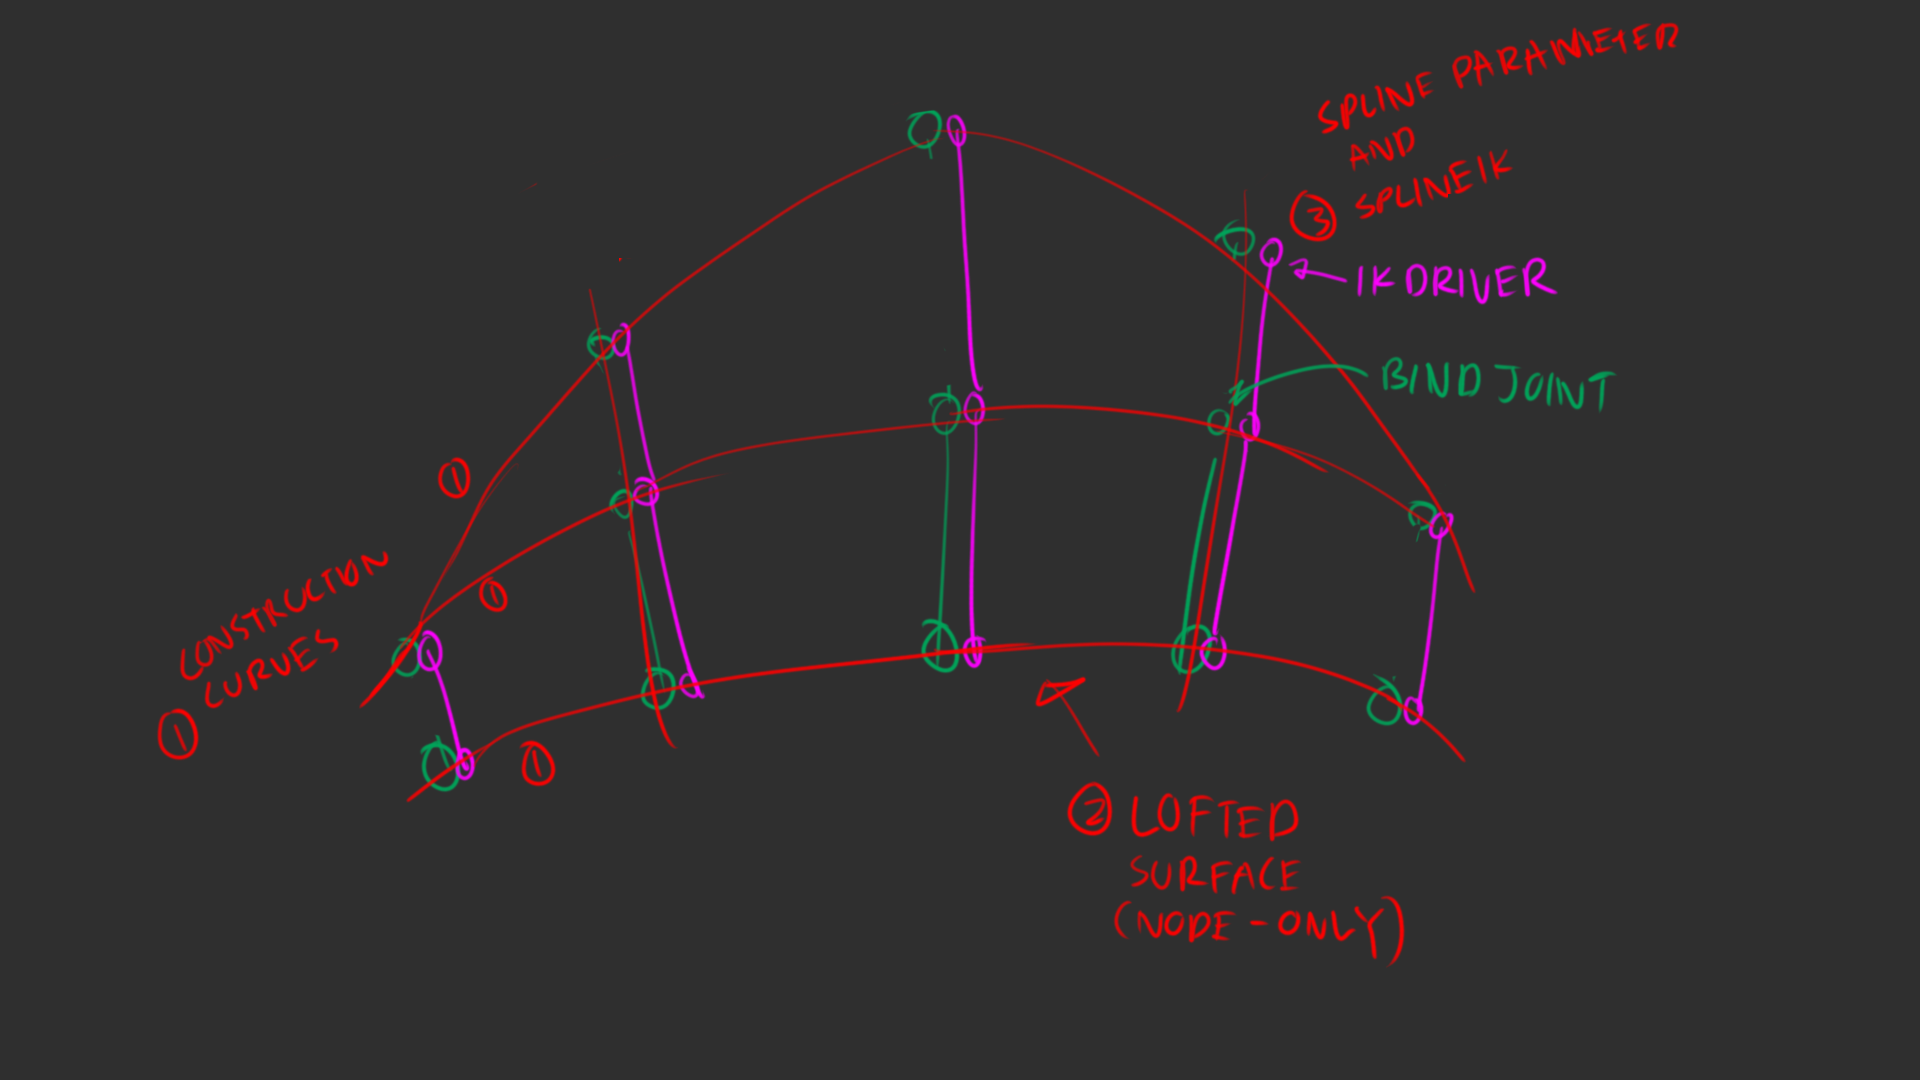 SPLINE PARAMETER
AND
③ SPLINEIK
IK DRIVER
BIND JOINT
①
①
CONSTRUCTION
CURVES
①
①
② LOFTED
SURFACE
(NODE-ONLY)